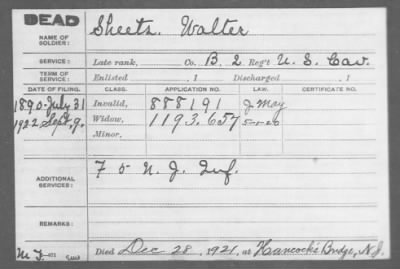 DEAD
NAME OF SOLDIER: Sheets. Walter
SERVICE: Late rank, Co. B, 2 Reg't U. S. Cav.
TERM OF SERVICE: Enlisted , 1 Discharged , 1
DATE OF FILING. CLASS. APPLICATION NO. LAW. CERTIFICATE NO.
1890-July 31 Invalid, 888191 J. May
1922 Sept. 9. Widow, 1193.657 5-1-20
Minor,
ADDITIONAL SERVICES: F 5 N. J. Inf.
REMARKS:
Died Dec 28, 1921, at Hancock's Bridge, N.J.